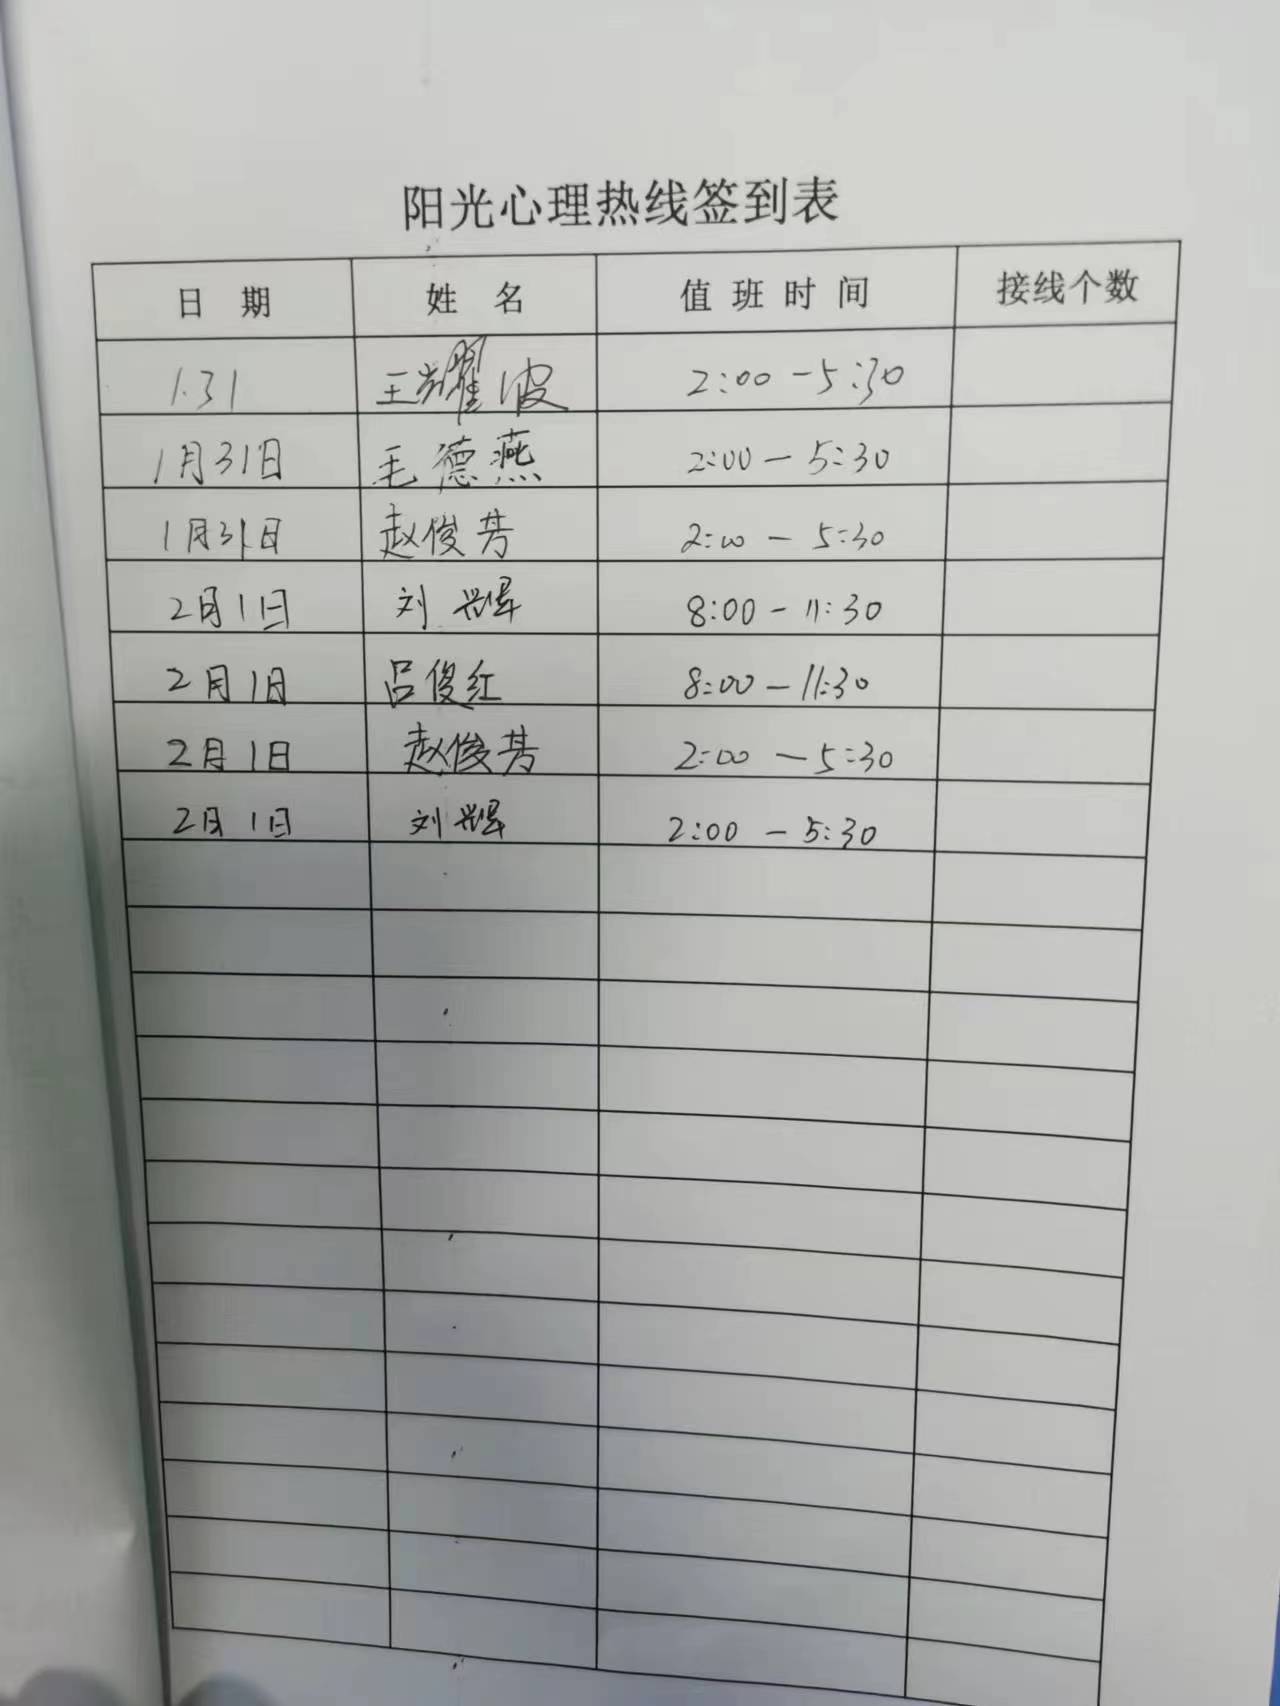 阳光心理热线签到表
日 期 姓 名 值 班 时 间 接线个数
1.31 王耀波 2:00-5:30
1月31日 毛德燕 2:00-5:30
1月31日 赵俊芳 2:00-5:30
2月1日 刘兴晖 8:00-11:30
2月1日 吕俊红 8:00-11:30
2月1日 赵俊芳 2:00-5:30
2月1日 刘兴晖 2:00-5:30